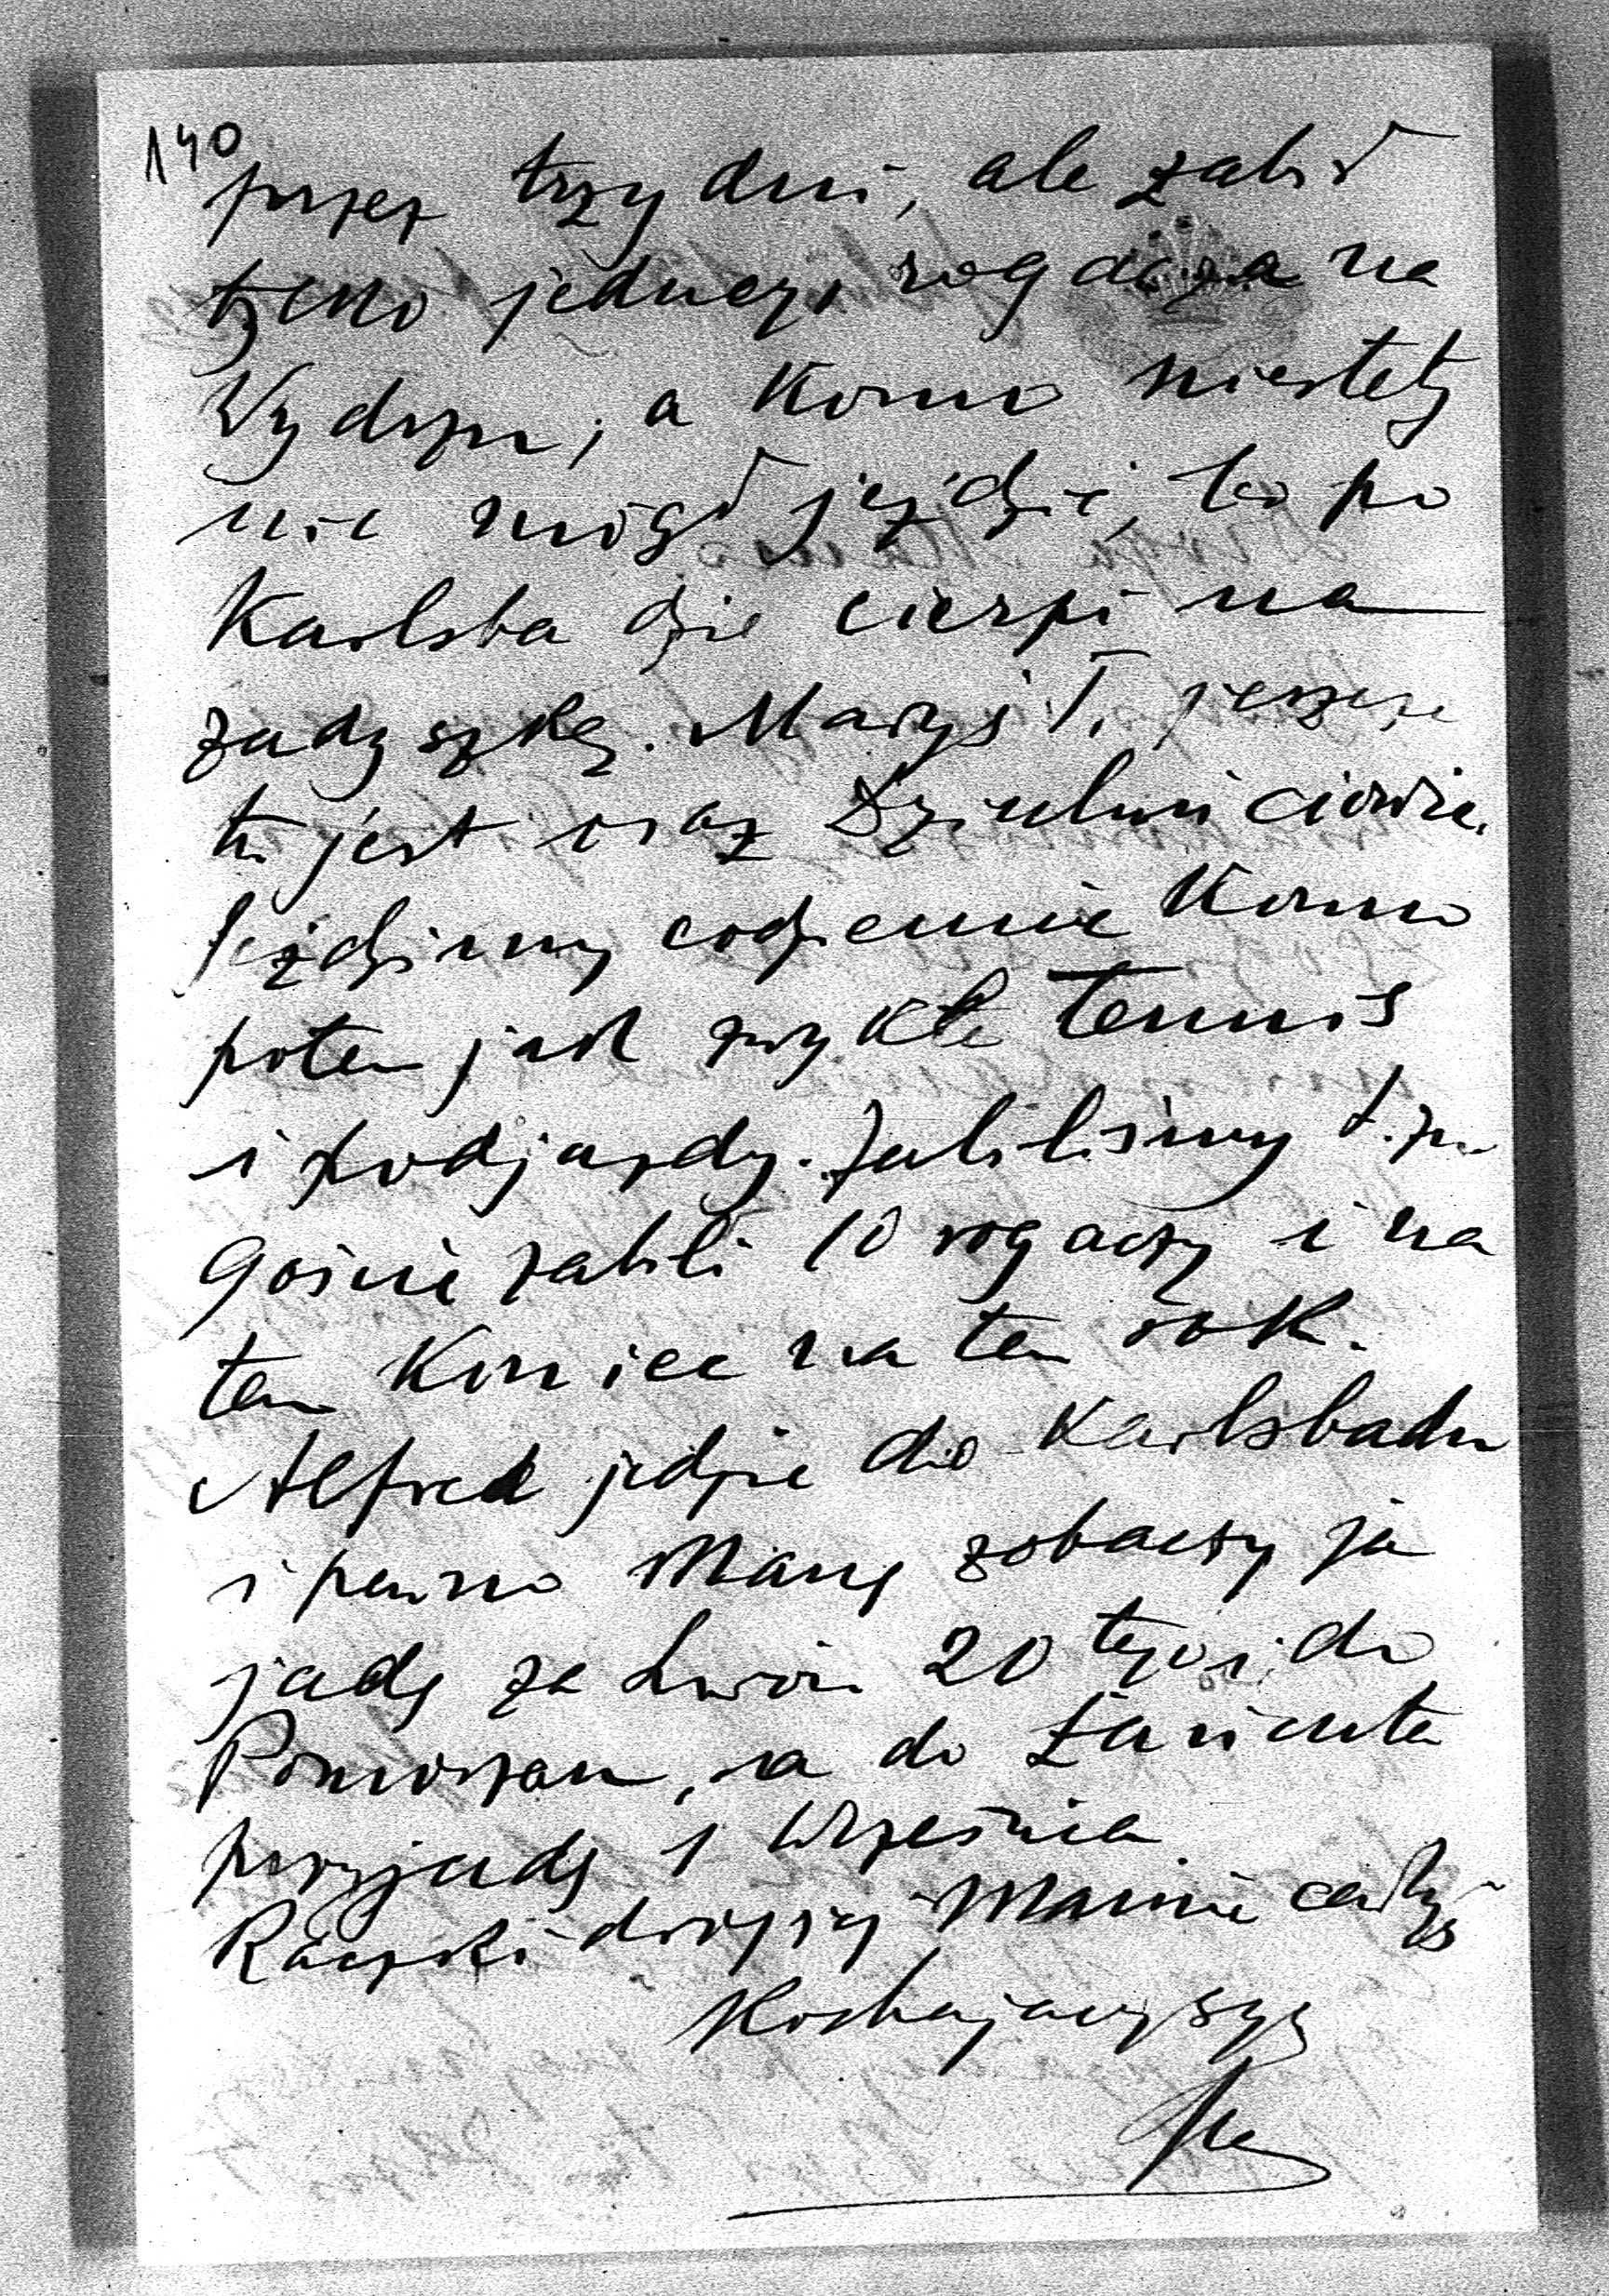 140
przez trzy dni, ale zabił
tylko jednego rogacza na
Wydrzu, a Konno niestety
nie mógł jeździć, bo po
Karlsbadzie cierpi na
zadyszkę. Maryś T. jeszcze
tu jest oraz
Jeździmy codziennie Konno
potem jak zwykle Tennis
i podjazdy. Zabiliśmy t. zn.
goście zabili 10 rogaczy i na
tem Koniec na ten rok.
Alfred jedzie do Karlsbadu
i pewno Mamę zobaczy ja
jadę za Lwów 20 tego i do
Pomorzan, a do Łańcuta
przyjadę 1 Września
Rączki drogiej Mamie całuję
Kochający syn